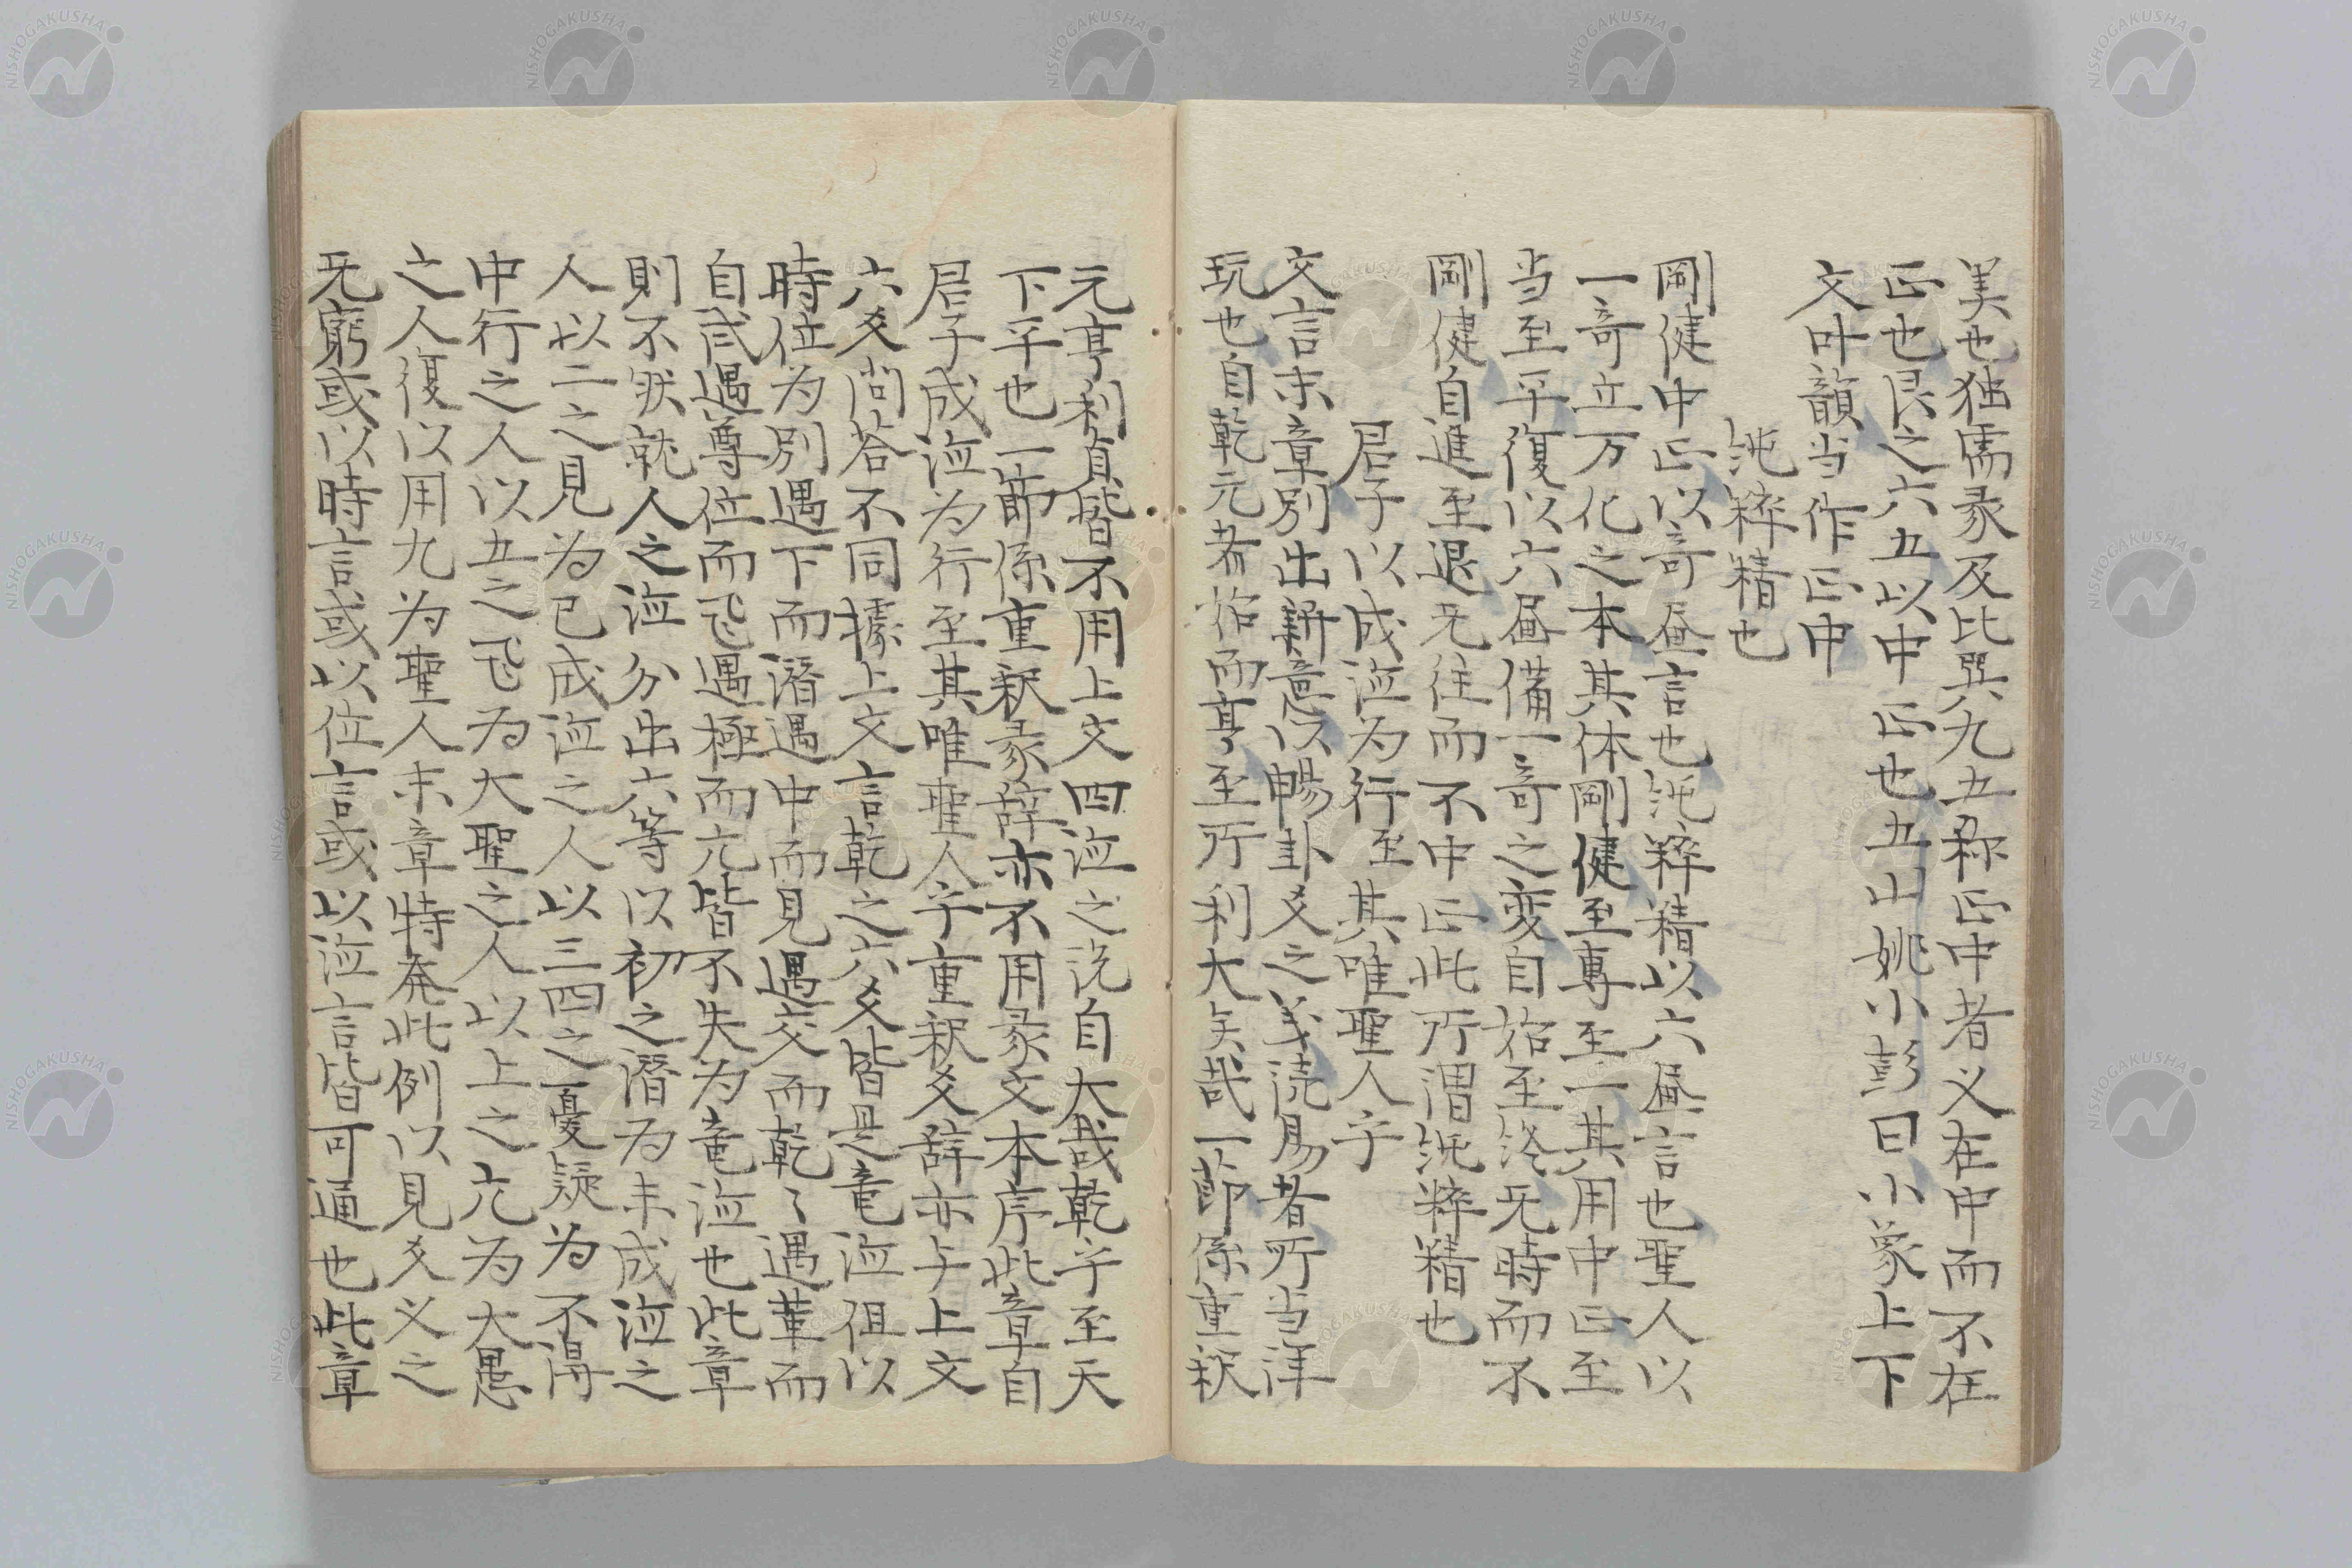 美也独需彖及比巽九五称正中者义在中而不在
正也艮之六五以中正也五山姚小彭曰小象上下
文叶韻当作正中
純粹精也
剛健中正以奇畫言也純粹精以六畫言也聖人以
一奇立万化之本其体剛健至專至一其用中正至
当至平復以六畫備一奇之変自始至終无時而不
剛健自進至退无往而不中正此所谓純粹精也
君子以成德为行至其唯聖人乎
文言末章別出新意以暢卦爻之义読易者所当详
玩也自乾元者始而亨至所利大矣哉一節係重釈
元亨利貞皆不用上文四德之说自大哉乾乎至天
下平也一節係重釈彖辞亦不用彖文本序此章自
君子成德为行至其唯聖人乎重釈爻辞亦与上文
六爻尚答不同據上文言乾之六爻皆是竜德但以
時位为別遇下而潛遇中而見遇交而乾〻遇革而
自试遇尊位而飞遇極而亢皆不失为竜德也此章
則不然就人之德分出六等以初之潛为未成德之
人以二之見为已成德之人以三四之憂疑为不得
中行之人以五之飞为大聖之人以上之亢为大愚
之人復以用九为聖人末章特発此例以見爻义之
无窮或以時言或以位言或以德言皆可通也此章